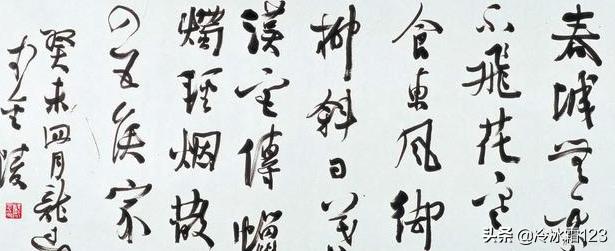 春城無處
不飛花寒
食東風御
柳斜日暮
漢宮傳蠟
燭輕烟散
入五侯家
癸未四月
头条 @冷冰霜123